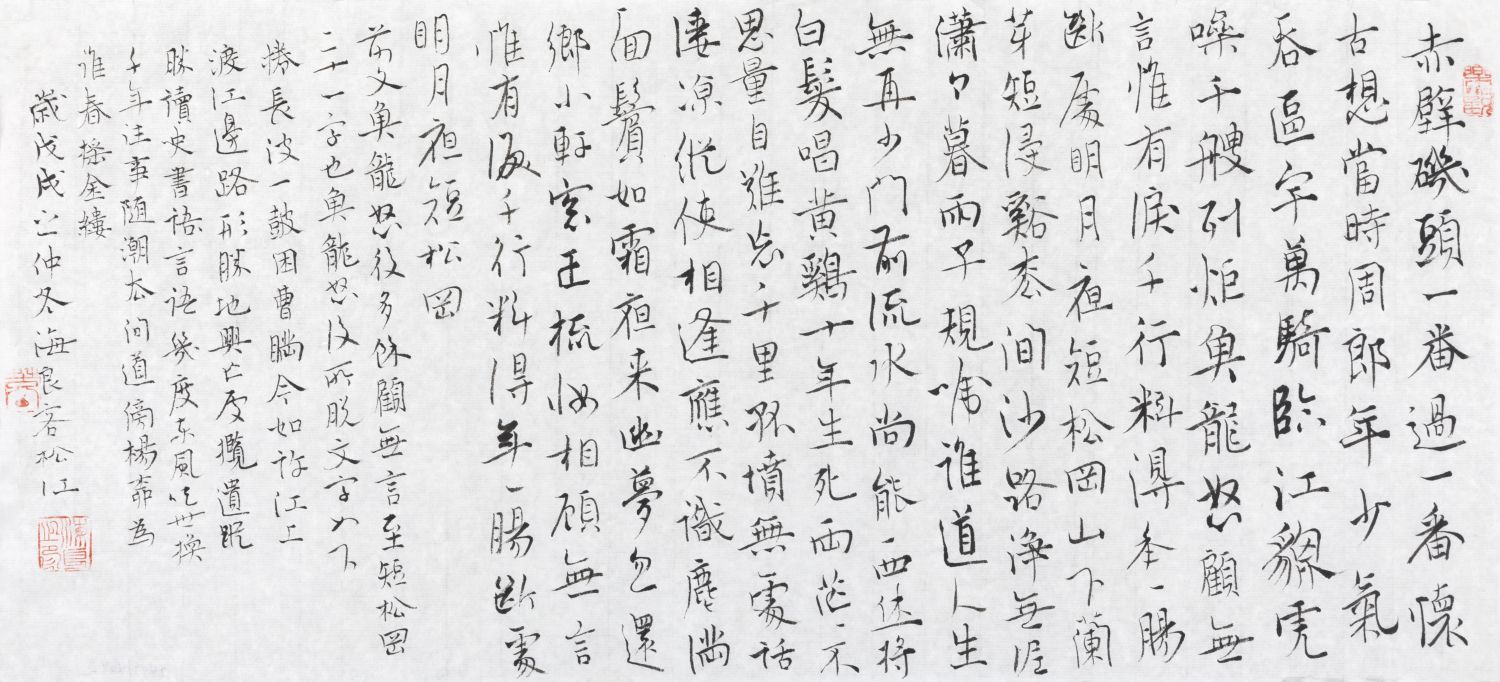 赤壁磯頭一番過一番懷
古想當時周郎年少氣
吞區宇萬騎臨江貔虎
噪千艘列炬魚龍怒顧無
言惟有淚千行料得年〻腸
斷處明月夜短松岡山下蘭
芽短浸谿松間沙路淨無泥
瀟〻暮雨子規啼誰道人生
無再少門前流水尚能西休將
白髮唱黃鷄十年生死兩茫〻不
思量自難忘千里孤墳無處話
淒涼縱使相逢應不識塵滿
面鬢如霜夜来幽夢忽還
鄉小軒窗正梳妝相顧無言
惟有淚千行料得年〻腸斷處
明月夜短松岡
前文魚龍怒後多餘顧無言至短松岡
二十一字也魚龍怒後所脱文字如下
捲長波一鼓困曹瞞今如許江上
渡江邊路形勝地興亡處攬遺蹤
勝讀史書語言語幾度東風吹世換
千年往事隨潮去問道傍楊柳為
誰春搖金縷
歲戊戌之仲冬海良書松江